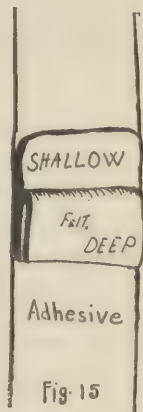 SHALLOW
Felt,
DEEP
Adhesive
Fig. 15